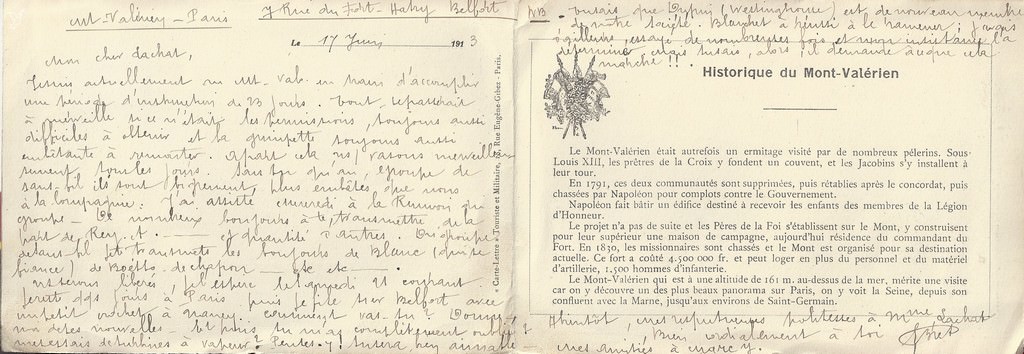 Mt-Valérien – Paris
7 Rue du Fort-Hatry Belfort
Le 17 Juin 1913
Mon cher Lachat,
Je suis actuellement au Mt-Val. en train d'accomplir
une période d'instruction de 23 jours. Tout se passerait
à merveille si ce n'était les permissions, toujours aussi
difficiles à obtenir et la guimpette toujours aussi
embêtante à remonter. Apart cela ns rasons merveilleu
sement tous les jours. Sans qu'au groupe de
sans-fil ils sont bigrement plus embêtés que nous
à la compagnie. J'ai assisté mercredi à la Réunion du
groupe – De nombreux bonjours à te transmettre de la
part de Rey, et quantité d'autres. Du groupe
de sans-fil je te transmets les bonjours de Blanc
de Boëtto, de chapon – Etc etc –
Ns serons libérés, j'espère le samedi 21 courant.
Je ferai qqs jours à Paris puis je file sur Belfort avec
un petit crochet à Nancy. Comment vas-tu ? Donnes
nos de tes nouvelles – Et puis tu m'as complètement oublié
mes essais de turbines à vapeur ? Penses-y ! tu seras bien aimable
« Carte-Lettre » Touriste et Militaire, Rue Eugène-Gibez - Paris.
NB. Tu sais que Dupuy (Westinghouse) est de nouveau membre
de notre Société. Blanchet a réussi à le ramener ; j'avais
d'ailleurs, essayé de nombreuses fois et mon insistance l'a
déterminé, mais tu sais, alors, il demande à ce que cela
marche !!
Historique du Mont-Valérien
Le Mont-Valérien était autrefois un ermitage visité par de nombreux pélerins. Sous
Louis XIII, les prêtres de la Croix y fondent un couvent, et les Jacobins s'y installent à
leur tour.
En 1791, ces deux communautés sont supprimées, puis rétablies après le concordat, puis
chassées par Napoléon pour complots contre le Gouvernement.
Napoléon fait bâtir un édifice destiné à recevoir les enfants des membres de la Légion
d'Honneur.
Le projet n'a pas de suite et les Pères de la Foi s'établissent sur le Mont, y construisent
pour leur supérieur une maison de campagne, aujourd'hui résidence du commandant du
Fort. En 1830, les missionnaires sont chassés et le Mont est organisé pour sa destination
actuelle. Ce fort a coûté 4.500 000 fr. et peut loger en plus du personnel et du matériel
d'artillerie, 1.500 hommes d'infanterie.
Le Mont-Valérien qui est à une altitude de 161 m. au-dessus de la mer, mérite une visite
car on y découvre un des plus beaux panorama sur Paris, on y voit la Seine, depuis son
confluent avec la Marne, jusqu'aux environs de Saint-Germain.
A bientôt, mes respectueuses politesses à Mme Lachat
Bien cordialement à toi
mes amitiés à Marcy.